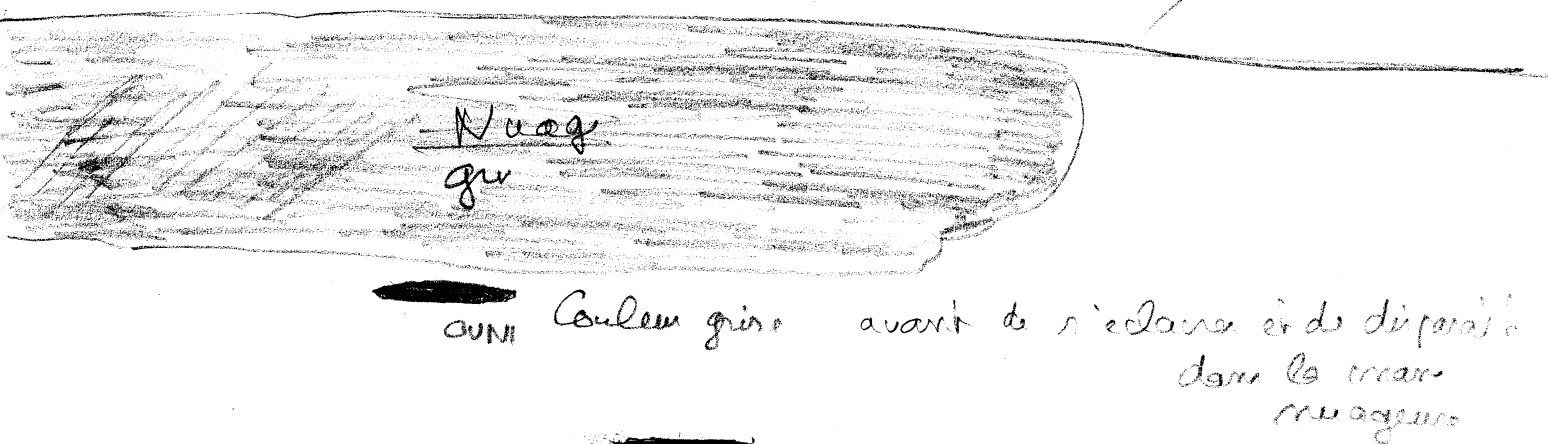 Nuag
gris
OVNI Couleur grise avant de s'eclairer et de disparaitre
dans la masse
nuageuse